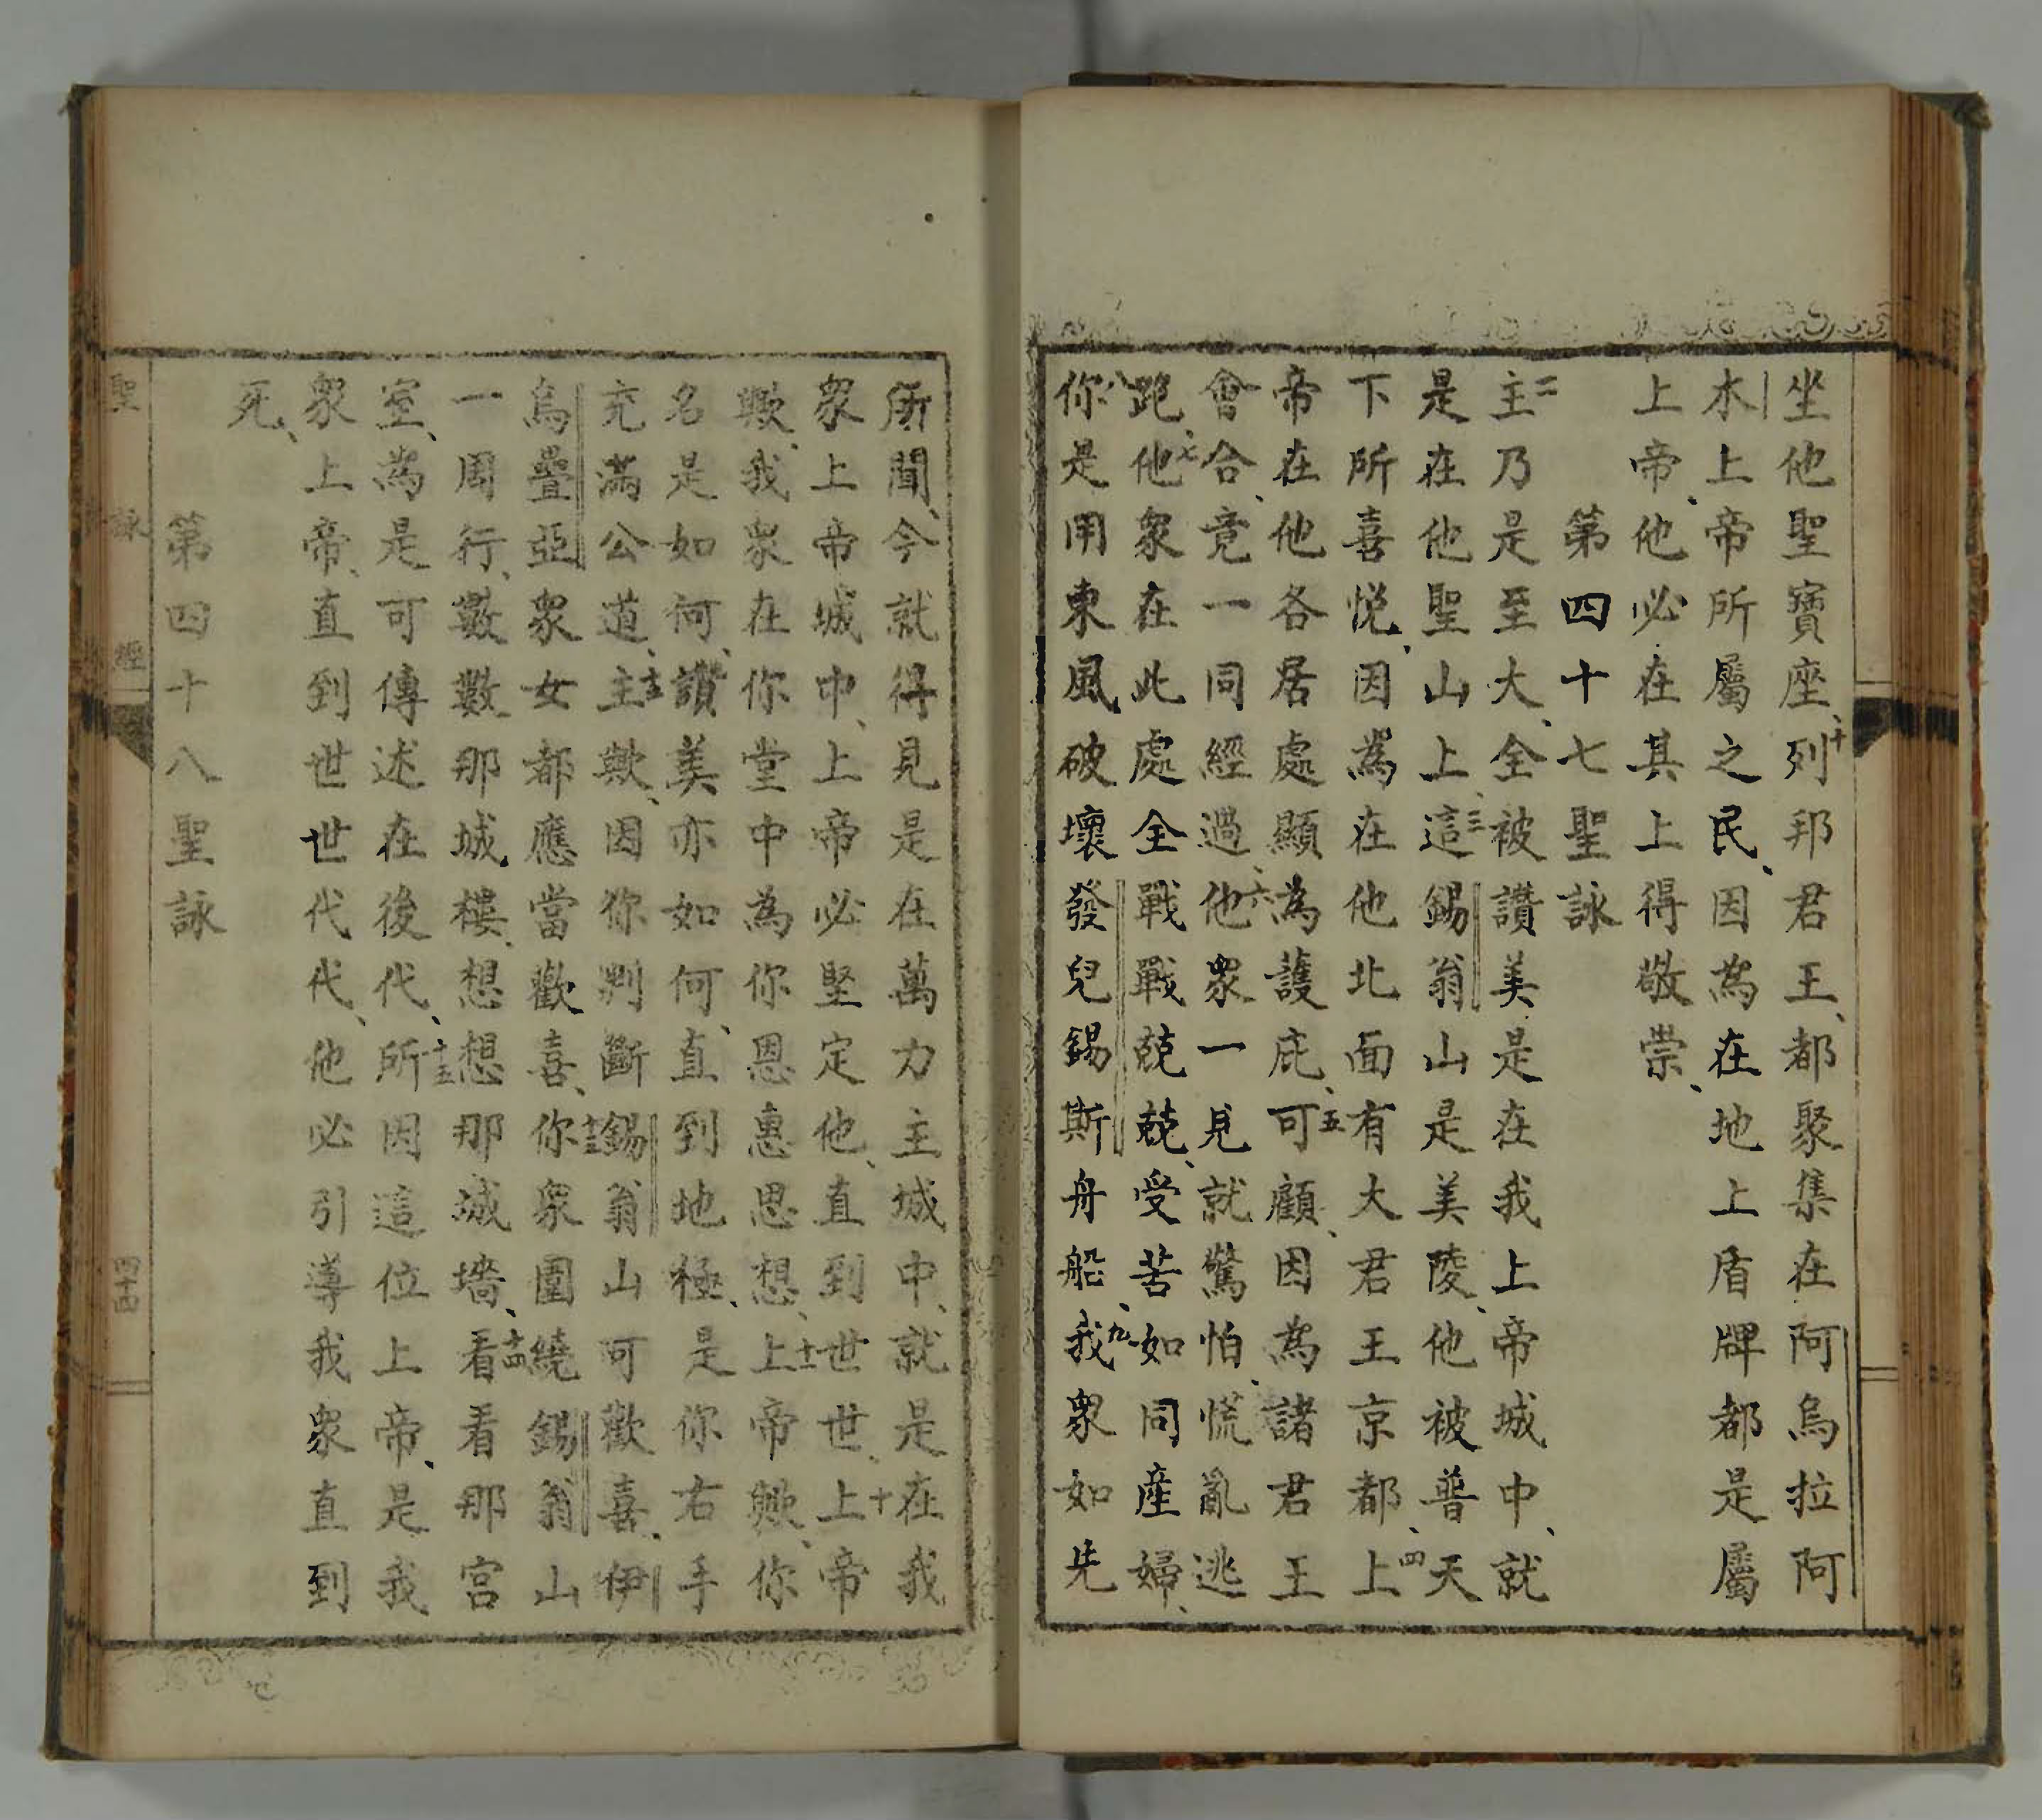 坐他聖寶座、十列邦君王、都聚集在阿烏拉阿
木上帝所屬之民、因為在地上盾牌都是屬
上帝、他必在其上得敬崇、
第四十七聖詠
二主乃是至大、全被讚美是在我上帝城中、就
是在他聖山上、三這錫翁山是美陵、他被普天
下所喜悅、因為在他北面有大君王京都、四上
帝在他各居處顯為護庇、五可顧、因為諸君王
會合、竟一同經過、六他衆一見就驚怕、慌亂逃
跑、七他衆在此處全戰戰兢兢、受苦如同產婦、
八你是用東風、破壞發兒錫斯舟船、九我衆如先
所聞、今就得見是在萬力主城中、就是在我
衆上帝城中、上帝必堅定他、直到世世、十上帝
歟、我衆在你堂中為你恩惠思想、十一上帝歟、你
名是如何、讚美亦如何、直到地極、是你右手
充滿公道、十二主歟、因你判斷錫翁山可歡喜、伊
烏疊亞衆女都應當歡喜、十三你衆圍繞錫翁山
一周行、數數那城樓、想想那城墻、十四看看那宮
室、為是可傳述在後代、十五所因這位上帝、是我
衆上帝、直到世世代代、他必引導我衆直到
死、
第四十八聖詠
聖詠經
四十四